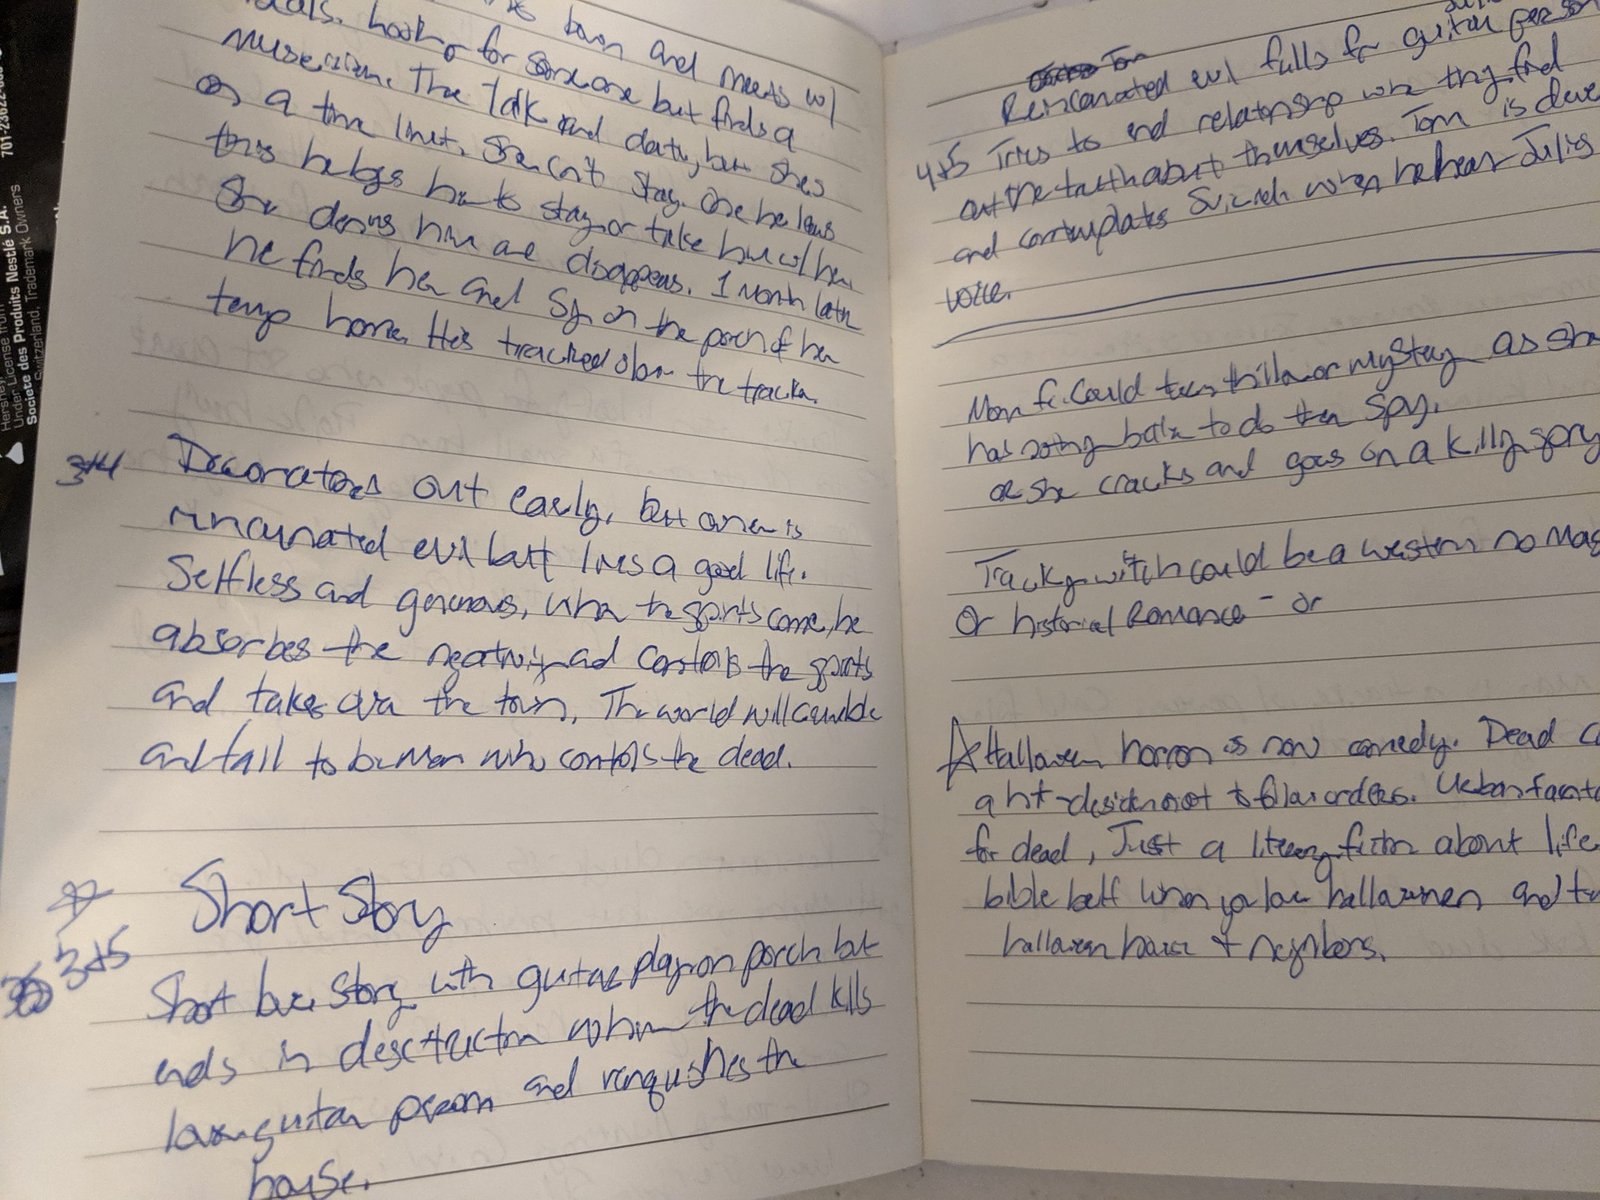 701-2
Hershey
Under License from
Société des Produits Nestlé S.A.
Switzerland, Trademark Owners
town and meets w/
locals. looking for someone but finds a
The talk and date, but she's
on a time limit. She can't stay. One he
this he begs her to stay or take him w/ her
She him and disappears. 1 month later
he finds her and on the porch of her
temp home. He's tracked down the tracker.
3+4
Decorations out early, but owner is
reincarnated evil but lives a good life.
Selfless and generous, when the spirits come, he
absorbes the negativity and controls the spirits
and takes over the town. The world will crumble
and fall to be man who controls the dead.
Short Story
3+5
Short love story with guitar play on porch but
ends in desctruction when the dead kills
guitar person and vanquishes the
house.
Tom
Reincarnated evil falls for guitar person
4+5 Tries to end relationship when they find
out the truth about themselves. Tom is
and contemplates when he hears Julies
voice.
could turn thriller or mystery as she
has nothing better to do then spy.
or she cracks and goes on a killing spry
Tracking witch could be a western no
Or historical Romance - or
Halloween horror is now comedy. Dead
not to follow orders. Urban
for dead, Just a literary fiction about life
bible belt when you love halloween and
halloween house + neighbors.